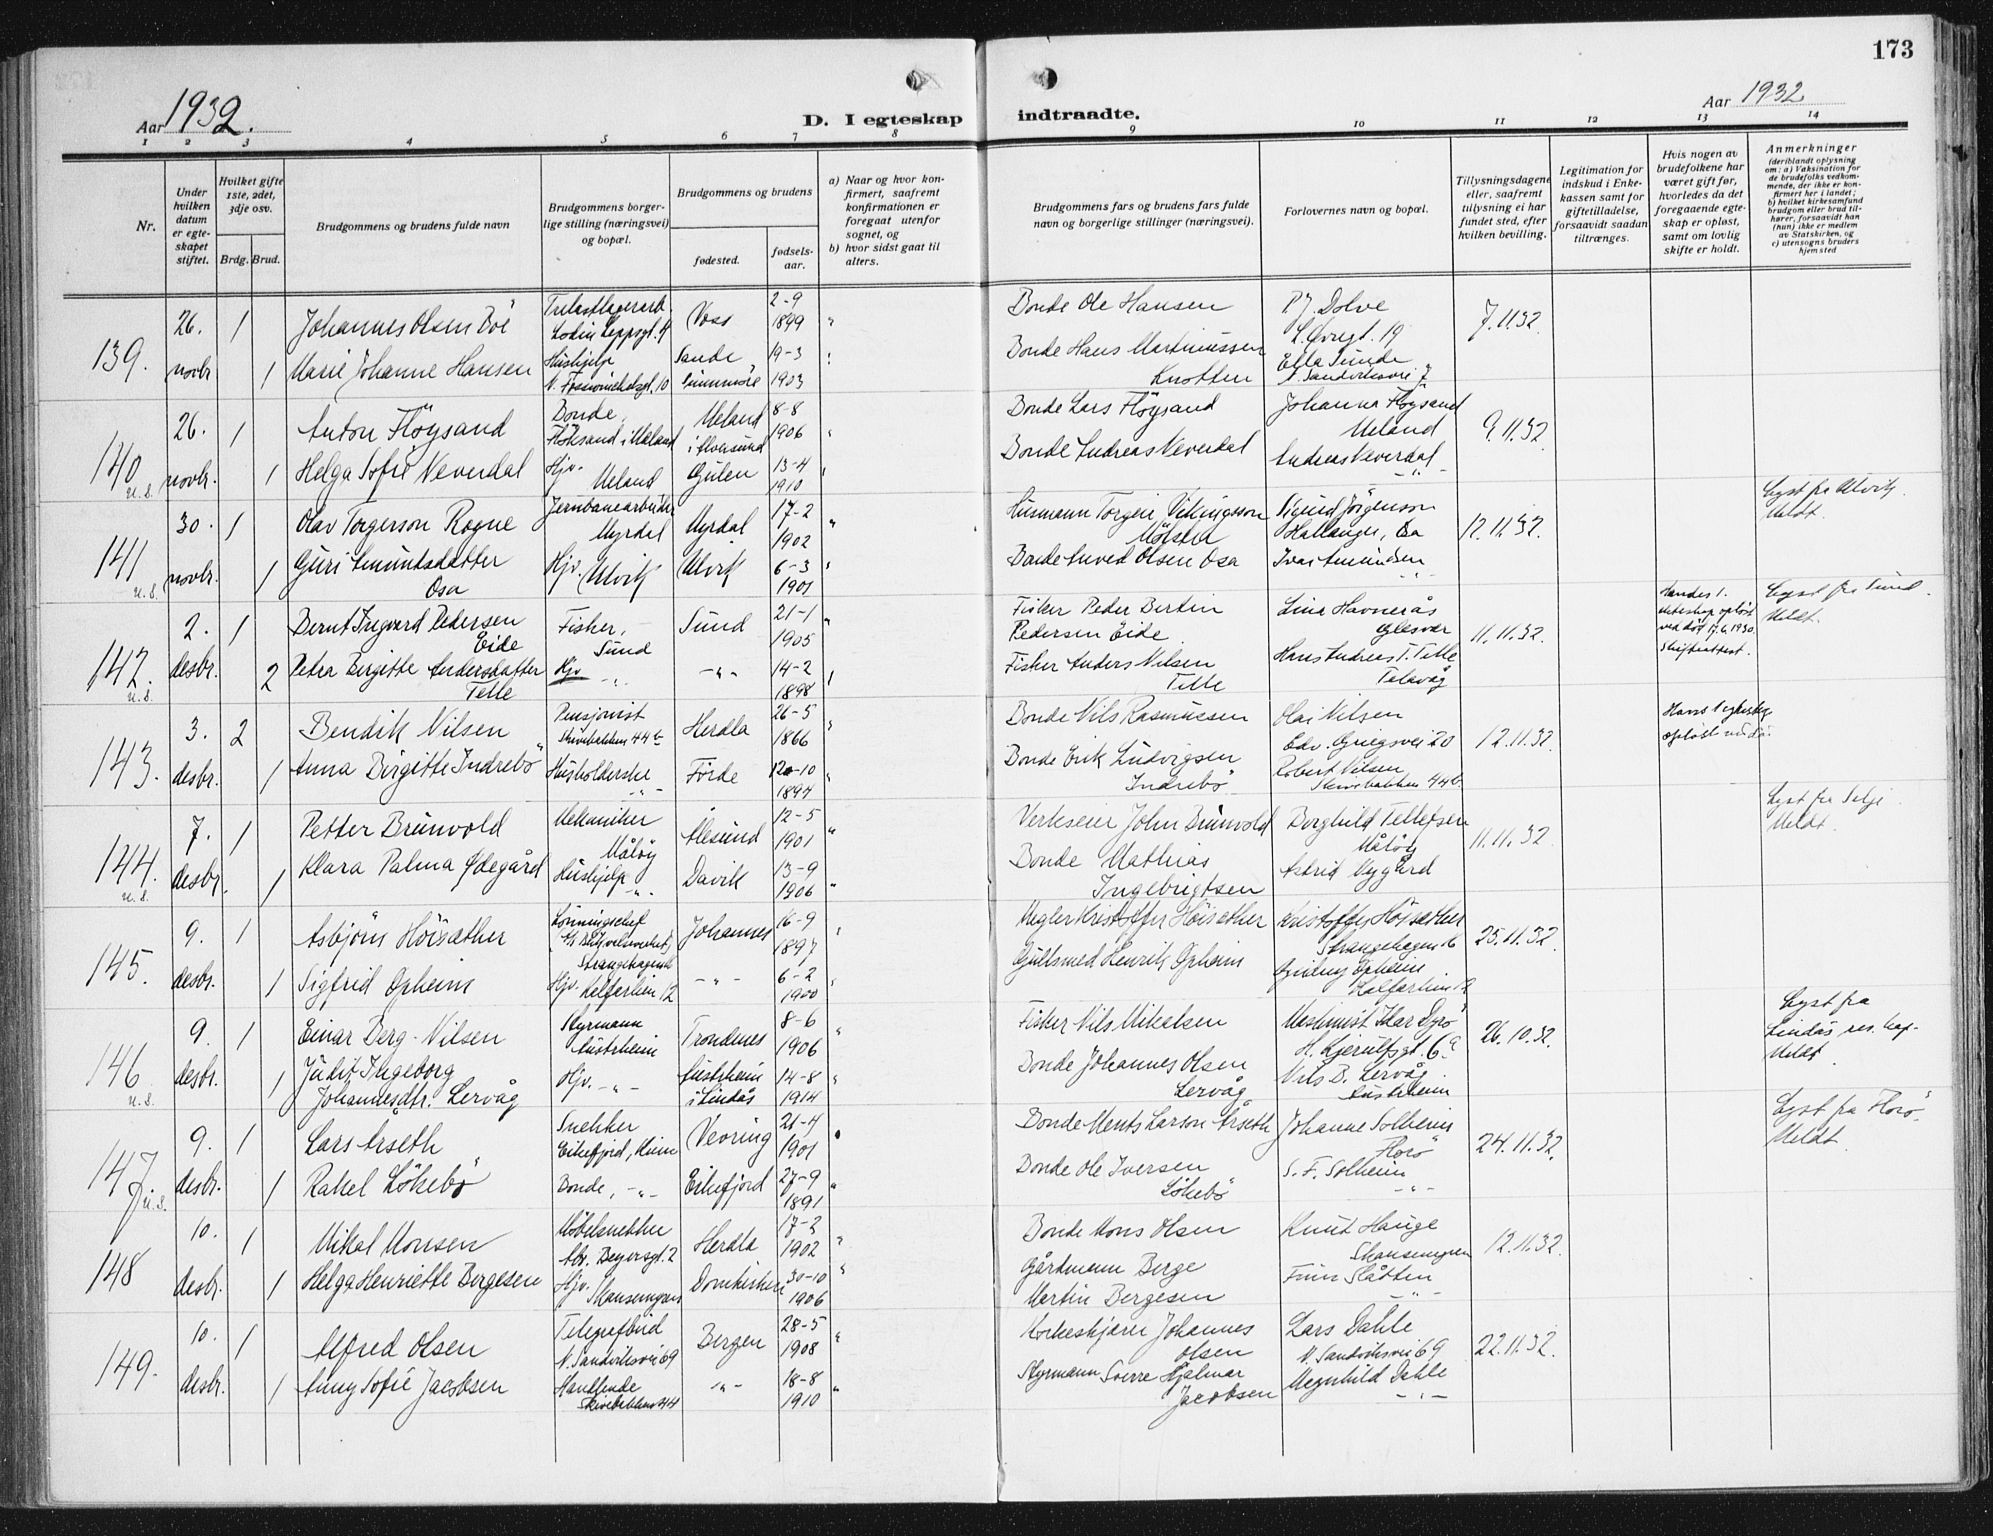 173
Aar 1932.
D. I egteskap
indtraadte.
Aar 1932
1 2 3 4 5 6 7 8 9 10 11 12 13 14
Nr.
Under hvilken datum er egteskapet stiftet.
Hvilket gifte 1ste, 2det, 3dje osv.
Brdg. Brud.
Brudgommens og brudens fulde navn
Brudgommens borgerlige stilling (næringsvei) og bopæl.
Brudgommens og brudens
fødested.
fødselsaar.
a) Naar og hvor konfirmert, saafremt konfirmationen er foregaat utenfor sognet, og
b) hvor sidst gaat til alters.
Brudgommens fars og brudens fars fulde navn og borgerlige stillinger (næringsvei).
Forlovernes navn og bopæl.
Tillysningsdagene eller, saafremt tillysning ei har fundet sted, efter hvilken bevilling.
Legitimation for indskud i Enkekassen samt for giftetilladelse, forsaavidt saadan tiltrænges.
Hvis nogen av brudefolkene har været gift før, hvorledes da det foregaaende egteskap er opløst, samt om lovlig skifte er holdt.
Anmerkninger
(deriblandt oplysning om: a) Vaksination for de brudefolks vedkommende, der ikke er konfirmert her i landet; b) hvilket kirkesamfund brudgom eller brud tilhører, forsaavidt han (hun) ikke er medlem av Statskirken, og c) utensogns bruders hjemsted
139. 26. novbr. 1 Johannes Olsen Böe Trelastlagerarb. Lodin Leppsgt. 4 Voss 2-9 1899 " Bonde Ole Hansen P.J. Dolve 7.11.32.
1 Marie Johanne Hansen Hushjelp Sande Sunnmöre 19-3 1903 Bonde Hans Martinussen Knotten
140 u.s. 26. novbr. 1 Anton Flöysand Bonde, Meland i Alversund 8-8 1906 " Bonde Lars Flöysand Johanna Flöysand Meland 9.11.32.
1 Helga Sofie Neverdal Hjv. Meland Gulen 13-4 1910 Bonde Andreas Neverdal Andreas Neverdal -"-
141 u.s. 30. novbr. 1 Olav Torgerson Rogne Jernbanearbeider Myrdal Myrdal 17-2 1902 " Husmann Torgeir Vikingsson Sigurd Jörgenson 12.11.32. Lyst fra Ulvik. Meldt.
1 Guri Amundsdatter Osa Hjv. Ulvik Ulvik 6-3 1901 Bonde Amund Olsen Osa Ivar Amundsen -"-
142. u.s. 2. desbr. 1 Bernt Ingvard Pedersen Eide Fisker, Sund Sund 21-1 1905 " Fisker Peder Bertin Pedersen Eide Lina Havnerås Glesvær 11.11.32. Lyst fra Sund. Meldt.
2 Petra Birgitte Andersdatter Telle Hjv. -"- -"- 14-2 1898 Fisker Anders Nilsen Telle Hans Andreas T. Telle Telavåg Hendes 1. ekteskap oplöst ved död 17.6.1930. Skifteattest.
143. 3. desbr. 2 Bendik Nilsen Pensjonist Skivebakken 44 b Herdla 26-5 1866 Bonde Nils Rasmussen Olai Nilsen Edv. Griegsvei 20 12.11.32.
1 Anna Birgitte Indrebö Husholderske -"- Förde 12-10 1894 Bonde Erik Ludvigsen Indrebö Robert Nilsen Skivebakken 44 b.
144. u.s. 7. desbr. 1 Petter Brunvold Mekaniker Måløy Ålesund 12-5 1901 " Verkseier John Brunvold Borghild Tellefsen Måløy 11.11.32 Lyst fra Selje Meldt.
1 Klara Palma Ødegård Hushjelp -"- Davik 13-9 1906 " Bonde Mathias Ingebrigtsen Astrid Nygård
145. 9. desbr. 1 Asbjörn Höisæther Strangehagen 16 Johannes 16-9 1897 Megler Kristoffer Höisæther Kristoffer Höisæther Strangehagen 16 25.11.32.
1 Sigfrid Opheim Hjv. Kalfarlien 12 -"- 6-2 1900 Gullsmed Henrik Opheim Opheim Kalfarlien 12
146 u.s. 9. desbr. 1 Einar Berg-Nilsen Styrmann Austrheim Trondenes 8-6 1906 " Fisker Nils Mikalsen Maskinist 26.10.32. Lyst fra Lindås res. kap. Meldt.
1 Judit Ingeborg Johannesdtr. Lervåg Hjv. -"- Austrheim i Lindås 14-8 1914 Bonde Johannes Olsen Lervåg Nils B. Lervåg Austrheim
147 u.s. 9. desbr. 1 Lars Årseth Snekker Eikefjord, Kinn Vevring 21-4 1901 Bonde Ments Larson Årseth Johanne Solheim Florö 24.11.32. Lyst fra Florö Meldt.
1 Rakel Lökebö Bonde, -"- Eikefjord 27-9 1891 " Bonde Ole Iversen Lökebö S. F. Solheim -"-
148 10. desbr. 1 Mikal Monsen Möbelsnekker Abr. Beyersgt. 2 Herdla 17-2 1902 " Bonde Mons Olsen Knut Hauge Skansemyren 12.11.32.
1 Helga Henriette Bergesen Hjv. Skansemyren Domkirken 30-10 1906 " Gårdmann Berge Martin Bergesen Finn Slåtten -"-
149. 10. desbr. 1 Alfred Olsen Telegrafbud N. Sandviksvei 69 Bergen 28-5 1908 " Johannes Olsen Lars Dahle N. Sandviksvei 69 22.11.32.
1 Anny Sofie Jacobsen Handlende Skivebakken 44 -"- 18-8 1910 " Styrmann Sverre Hjalmar Jacobsen Magnhild Dahle -"-